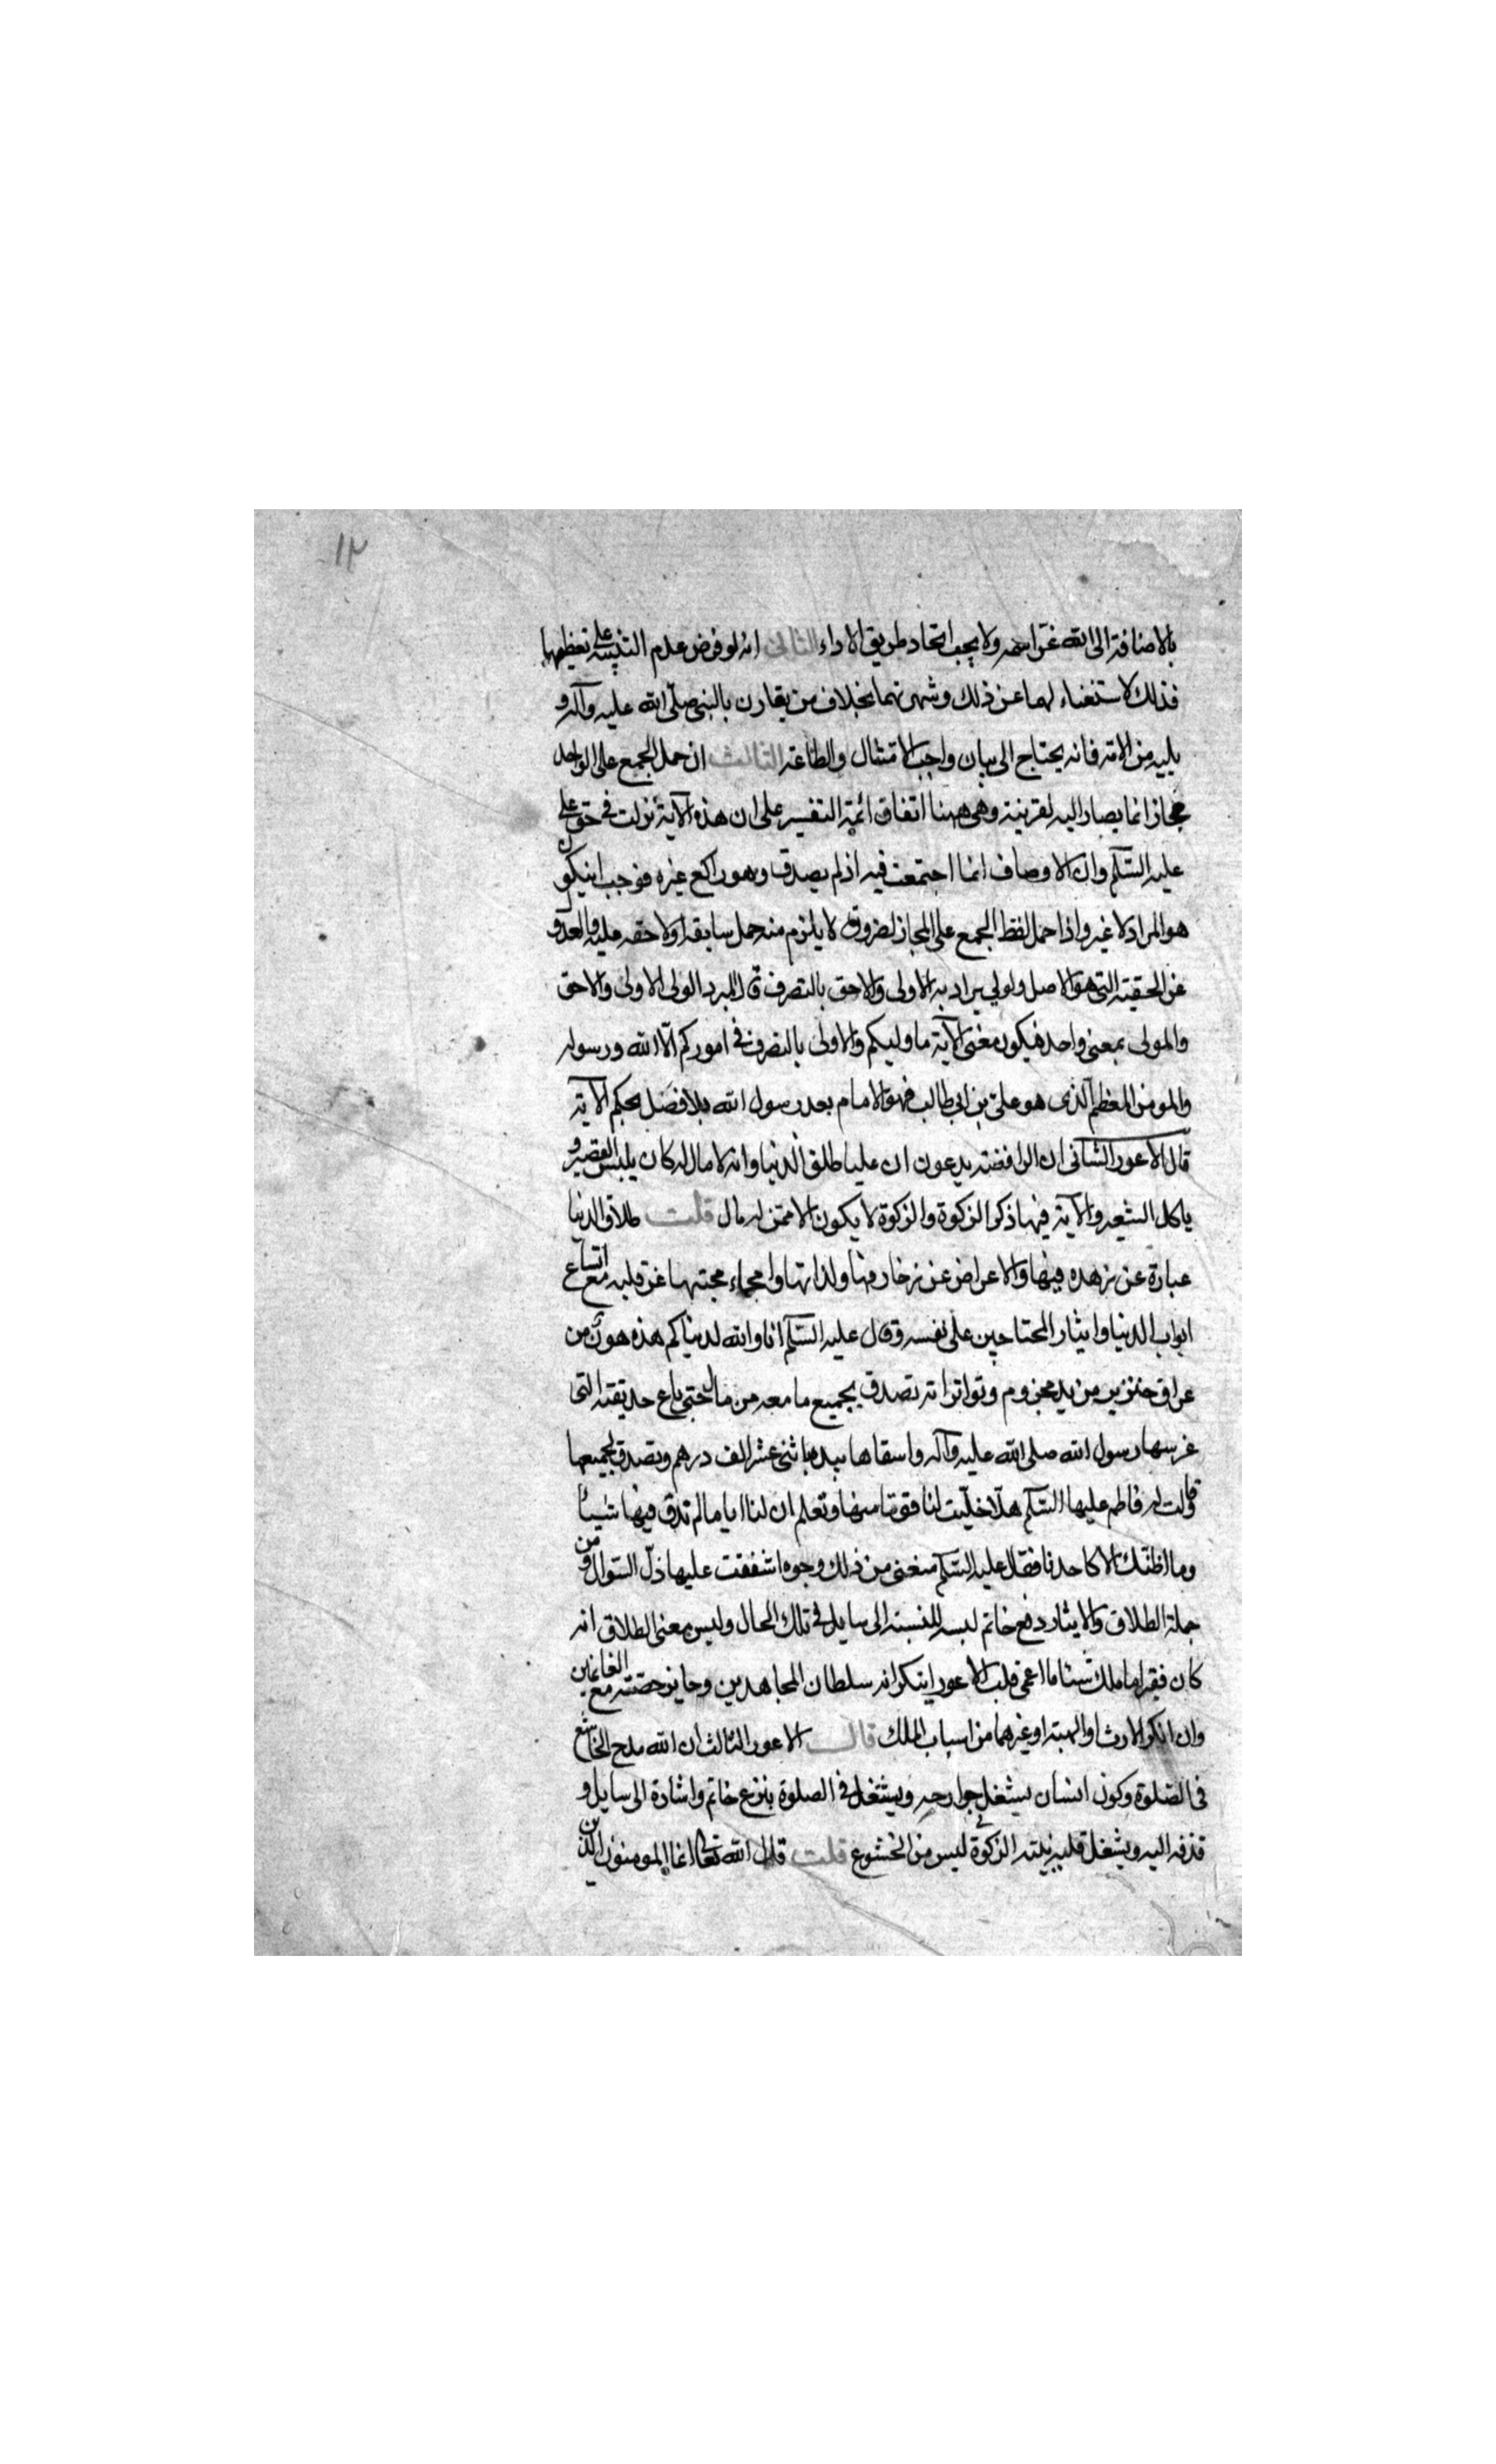 ١٢
بالاضافة الى الله عز اسمه ولا يجب اتحاد طريق الاداء الثانى انه لو فرض عدم التنبيه على تعظيمهما
فذلك لاستغناء لهما عن ذلك وشهرتهما بخلاف من يقارن بالنبى صلى الله عليه وآله و
يليه من الامة فانه يحتاج الى بيان واجب الامتثال والطاعة الثالث ان حمل الجمع على الواحد
مجاز انما يصار اليه لقرينة وهى ههنا اتفاق ائمة التفسير على ان هذه الآية نزلت فى حق على
عليه السلم وان الاوصاف انما اجتمعت فيه اذ لم يصدق وهو راكع غيره فوجب ان يكون
هو المراد لا غير واذا حمل لفظ الجمع على المجاز لضرورة لا يلزم منه حمل سابقه ولاحقه عليه والعدول
عن الحقيقة التى هو الاصل والولي يراد به الاولى والاحق بالتصرف قال المبرد الولى الاولى والاحق
والمولى بمعنى واحد فيكون معنى الآية ما وليكم والاولى بالتصرف فى اموركم الا الله ورسوله
والمومن المعظم الذى هو على بن ابى طالب فهو الامام بعد رسول الله بلا فصل بحكم الآية
قال الاعور الثانى ان الرافضة يدعون ان عليا طلق الدنيا وانه لا مال له كان يلبس القصير و
ياكل الشعير والآية فيها ذكر الزكوة والزكوة لا يكون الا ممن له مال قلت طلاق الدنيا
عبارة عن زهده فيها والاعراض عن زخارفها ولذاتها وامحاء محبتها عن قلبه مع اتساع
ابواب الدنيا وايثار المحتاجين على نفسه وقال عليه السلم انا والله لدنياكم هذه اهون من
عراق خنزير من يد مجزوم وتواتر انه تصدق بجميع ما معه من مال حتى باع حديقته التى
غرسها رسول الله صلى الله عليه وآله واسقاها بيده باثنى عشر الف درهم وتصدق بجميعها
وقالت له فاطم عليها السلم هلا خليت لنا قوتا منها وتعلم ان لنا اياما لم نذق فيها شيئا
وما اظنك الا كاحدنا فقال عليه السلم منعنى من ذلك وجوه اشفقت عليها ذل السوال ومن
جملة الطلاق والايثار دفع خاتم لبسه للنسبة الى سايل فى تلك الحال وليس معنى الطلاق انه
كان فقيرا ما ملك شيئا ما اعمى قلب الاعور اينكر انه سلطان المجاهدين وحايز حصته مع الغانمين
وان انكر الارث او الهبة او غيرهما من اسباب الملك قال الاعور الثالث ان الله مدح الخاشع
فى الصلوة وكون انسان يشغل جوارحه ويشتغل فى الصلوة بنزع خاتم واشارة الى سايل و
قذفه اليه ويشغل قلبه بنيته فى الزكوة ليس من الخشوع قلت قال الله تعالى انما المومنون الذين